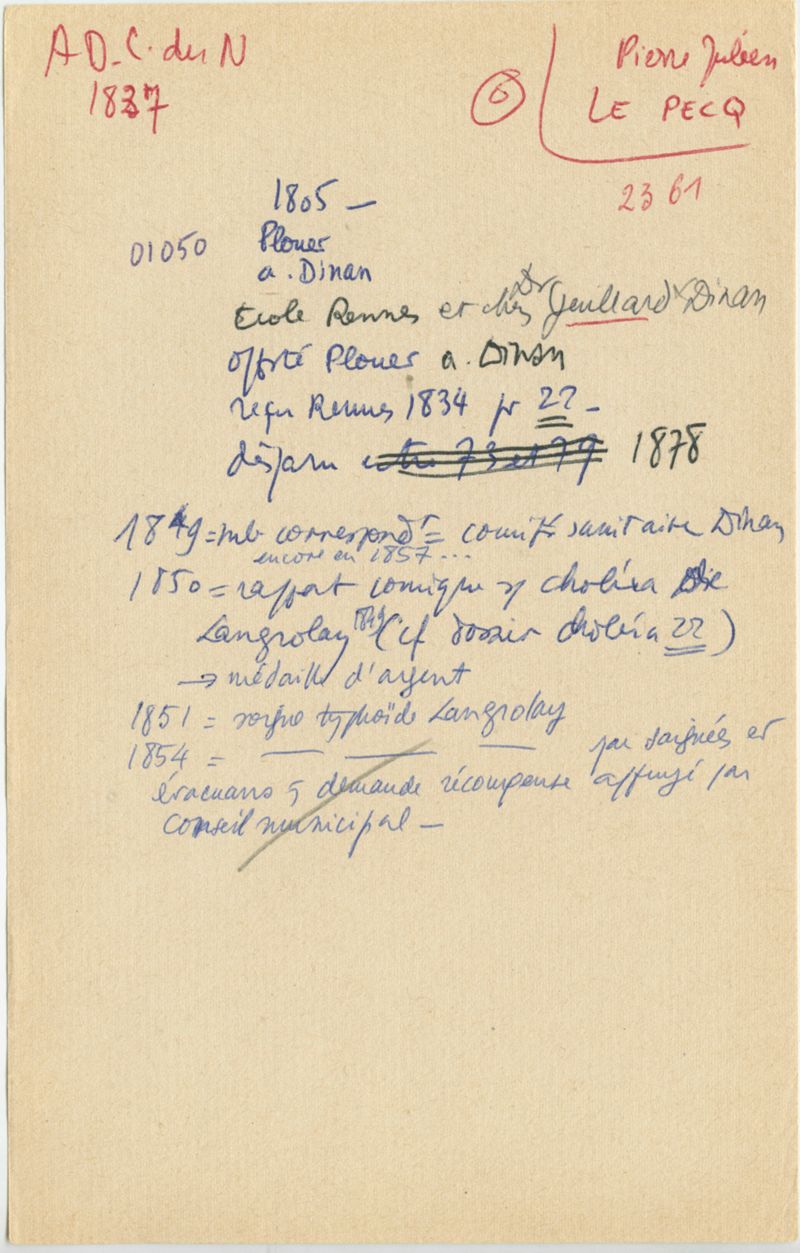 A D. C. du N
1837
6
Pierre Julien
LE PECQ
23 61
1805 —
01050
Plouer
a. Dinan
Ecole Rennes et chez Dr Dinan
offté Plouer a. Dinan
reçu Rennes 1834 pr 22 —
disparu entre 73 et 79 1878
1849 = mb correspondt = comité sanitaire Dinan
encore en 1857...
1850 = rapport comique s/ choléra
Langrolay 1849 (cf dossier choléra 22)
→ médaille d'argent
1851 = soigne typhoïde Langrolay
1854 = — — — par saignées et
évacuans demande récompense appuyé par
Conseil municipal —